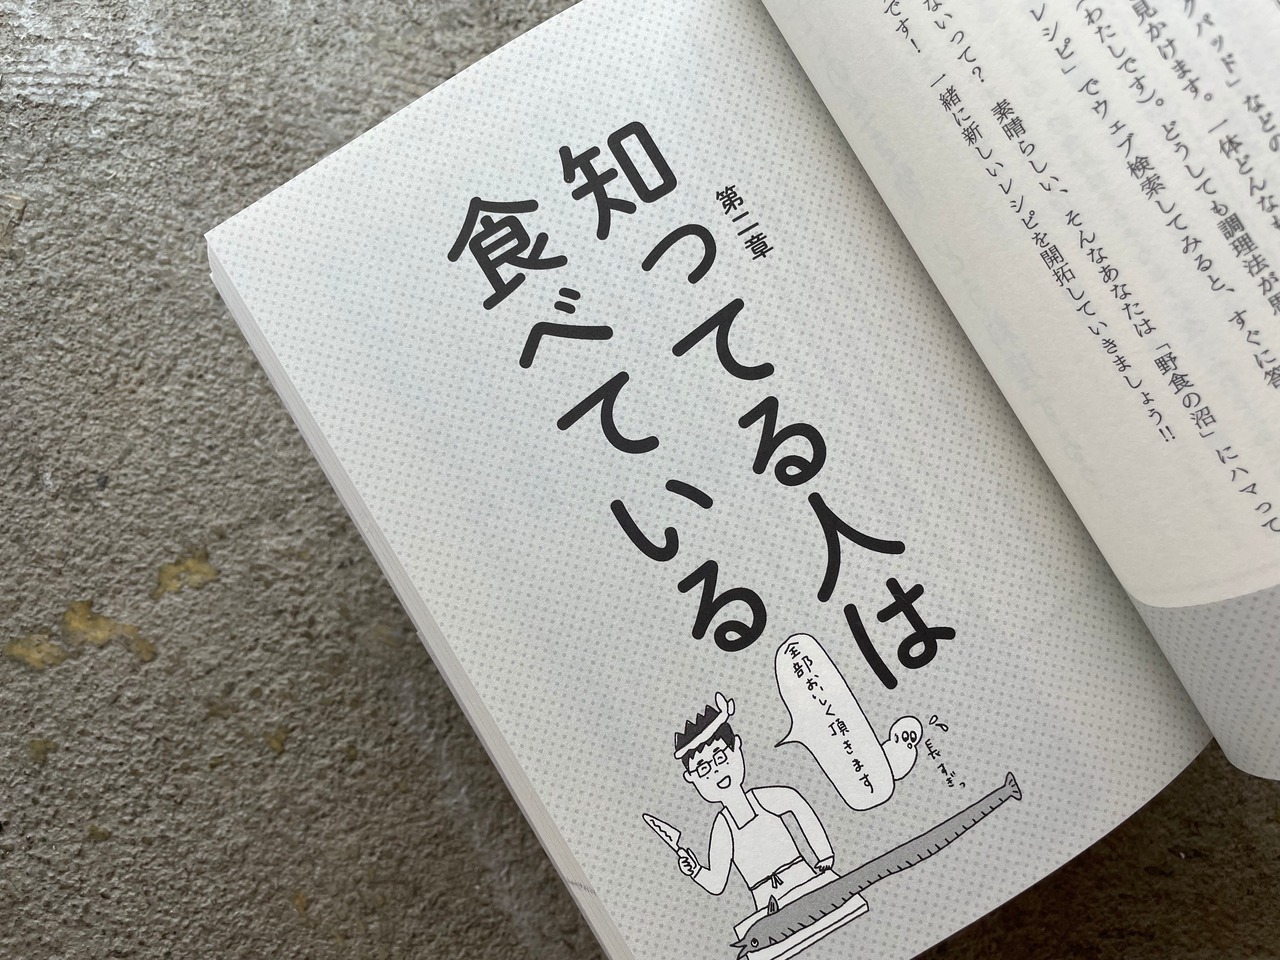 クパッド」などの
見かけます。一体どんなも
（わたしです）。どうしても調理法が思
レシピ」でウェブ検索してみると、すぐに答
ないって？　素晴らしい、そんなあなたは「野食の沼」にハマって
です！　一緒に新しいレシピを開拓していきましょう!!
第二章
知ってる人は
食べている
全部おいしく頂きます
長すぎっ